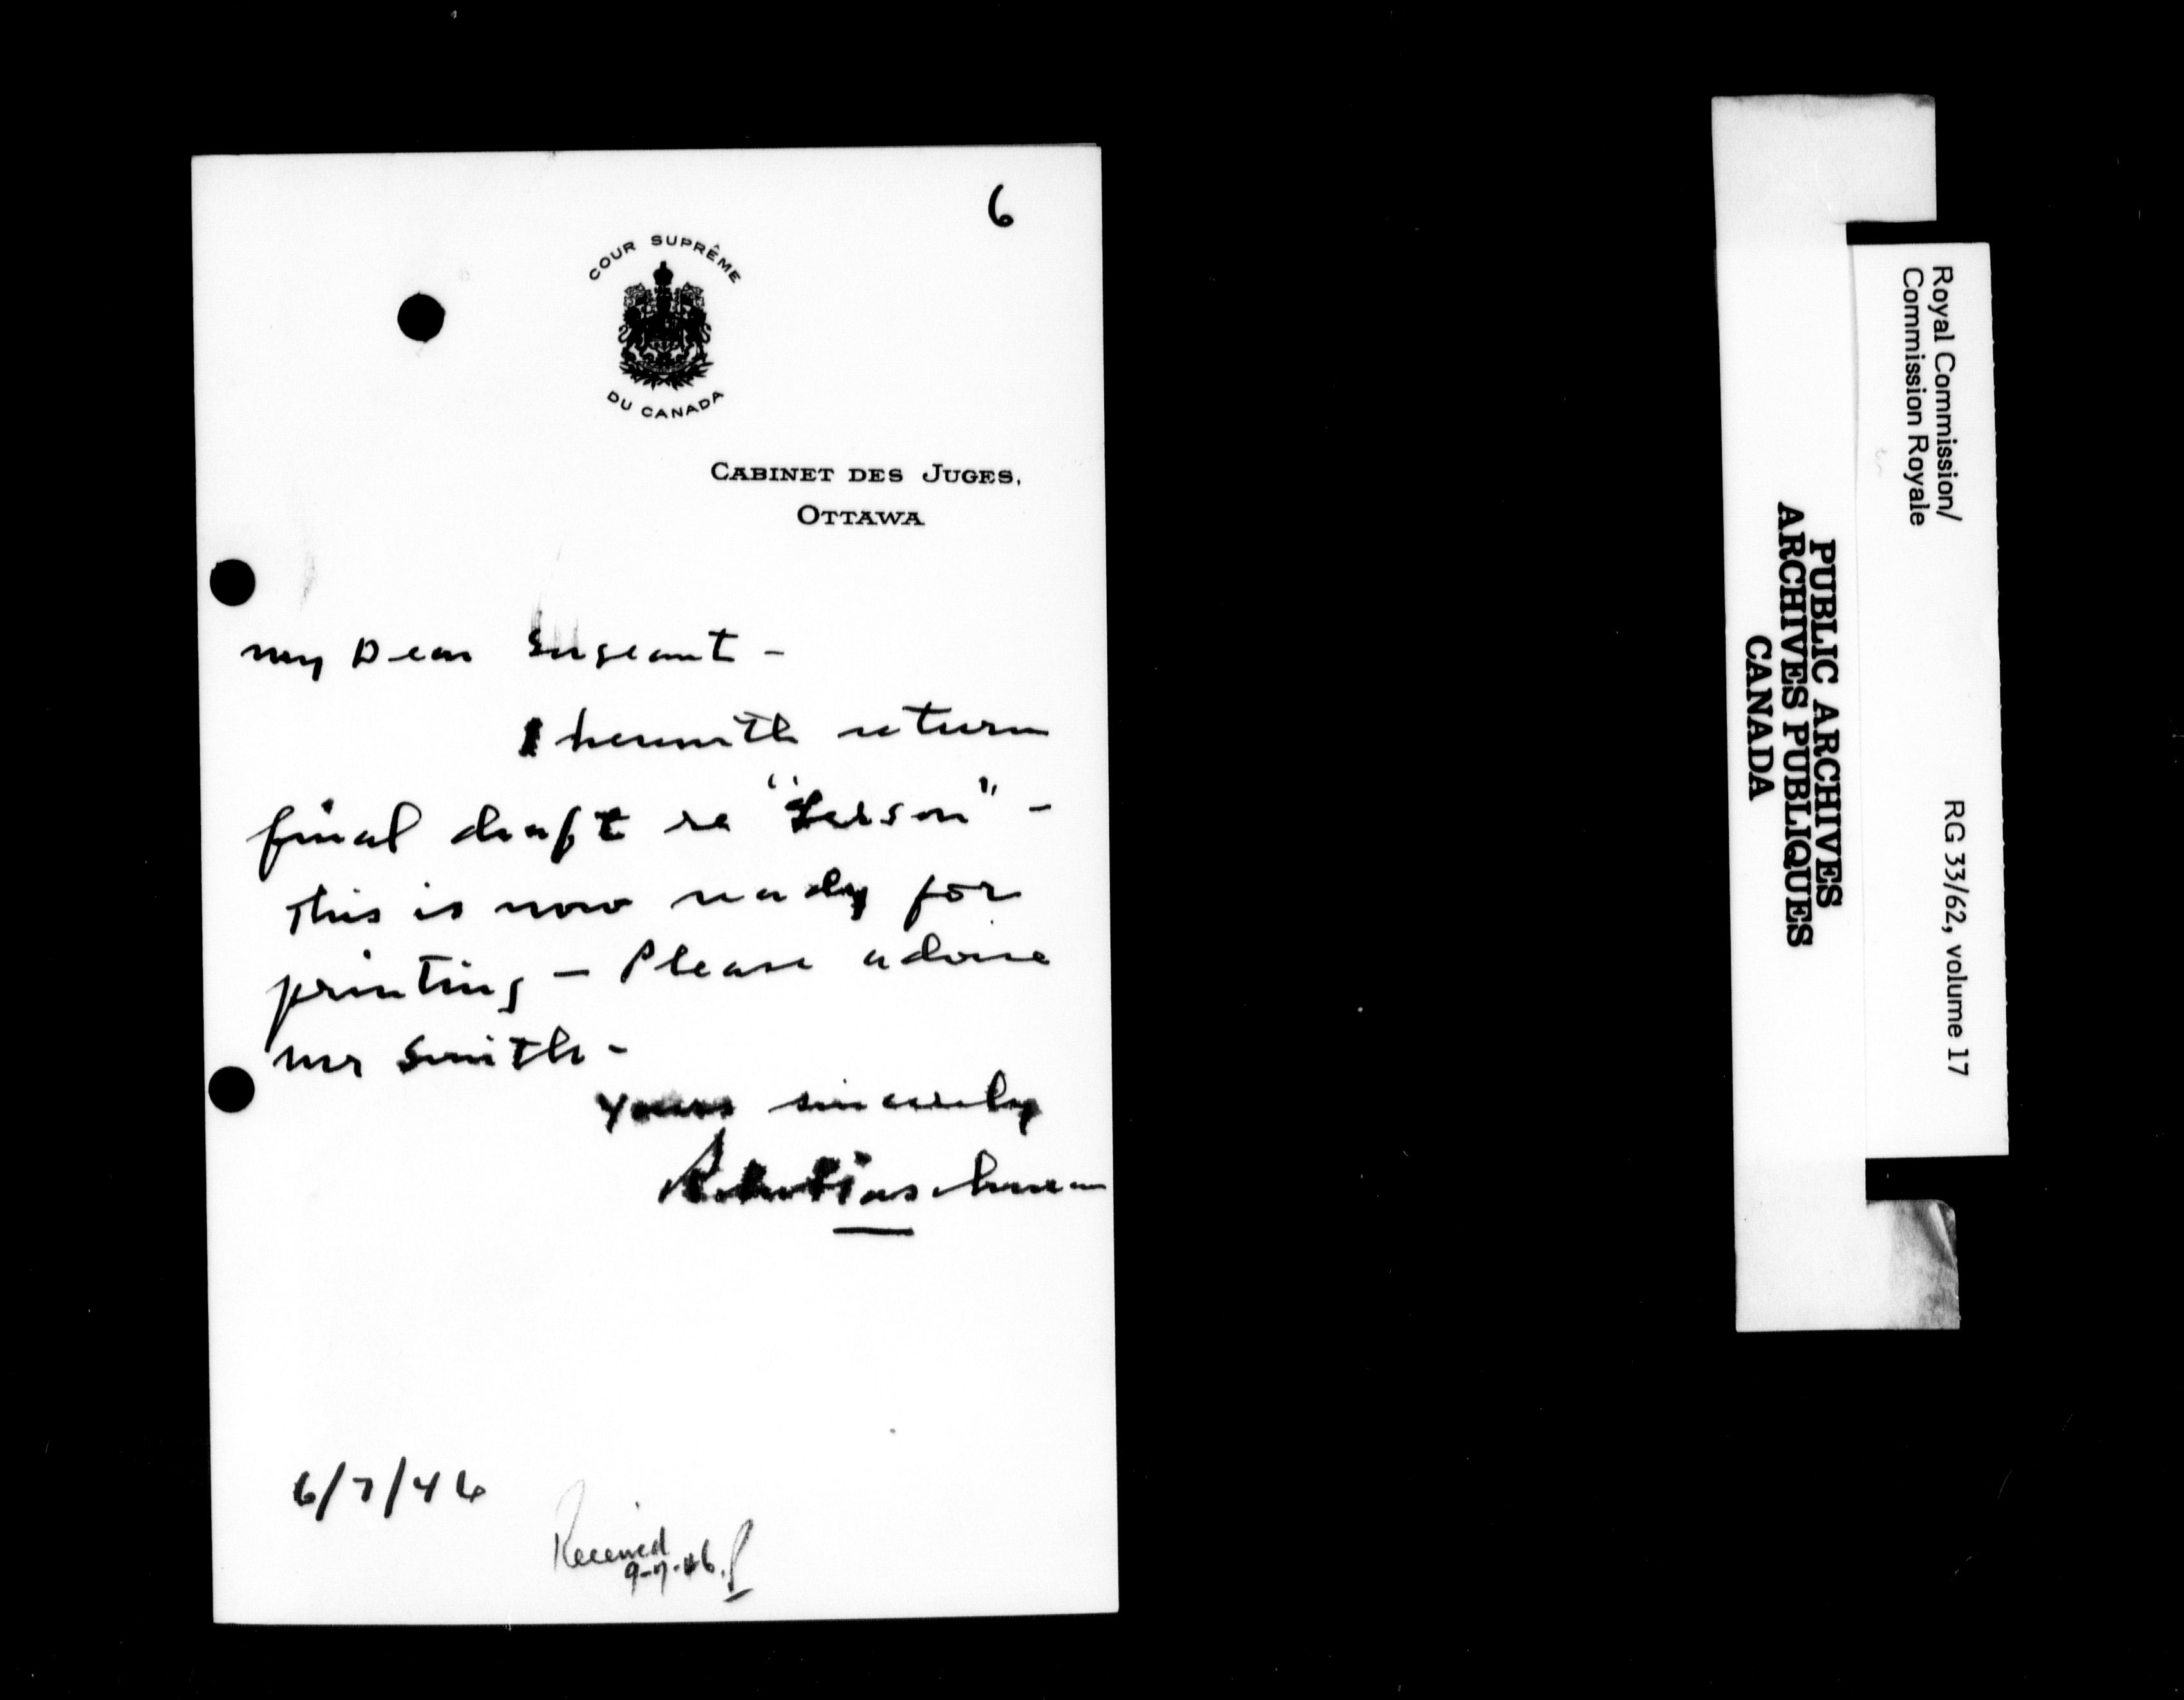 6
COUR SUPRÊME
DU CANADA
CABINET DES JUGES,
OTTAWA
My Dear Sergeant -
I herewith return
final draft re "Gerson" -
This is now ready for
printing - Please advise
Mr Smith -
Yours sincerely
Robert Taschereau
6/7/46
Received
9-7-46.
Royal Commission/
Commission Royale
RG 33/62, volume 17
PUBLIC ARCHIVES
ARCHIVES PUBLIQUES
CANADA